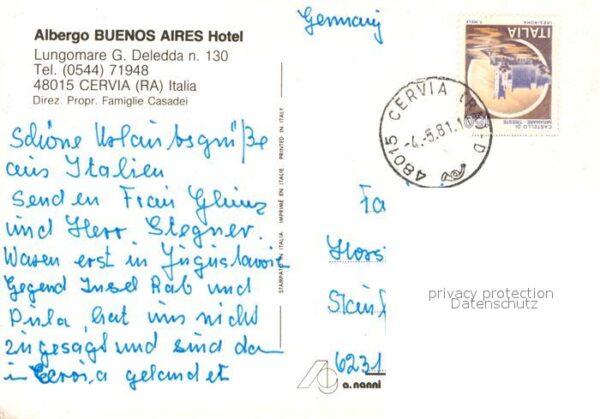 Albergo BUENOS AIRES Hotel
Lungomare G. Deledda n. 130
Tel. (0544) 71948
48015 CERVIA (RA) Italia
Direz. Propr. Famiglie Casadei
Schöne Urlaubsgrüße
aus Italien
senden Frau
und Herr Stegner.
Waren erst in Jugoslawien
Gegend Insel Rab und
Pula, hat uns nicht
zugesagt und sind da
in Cervia gelandet
STAMPATO IN ITALIA IMPRIMÉ EN ITALIE PRINTED IN ITALY
Germany
ITALIA
CASTELLO DI
MIRAMARE TRIESTE
48015 CERVIA
-4.-5.81.
Fa
Hors
6231
a. nanni
privacy protection
Datenschutz